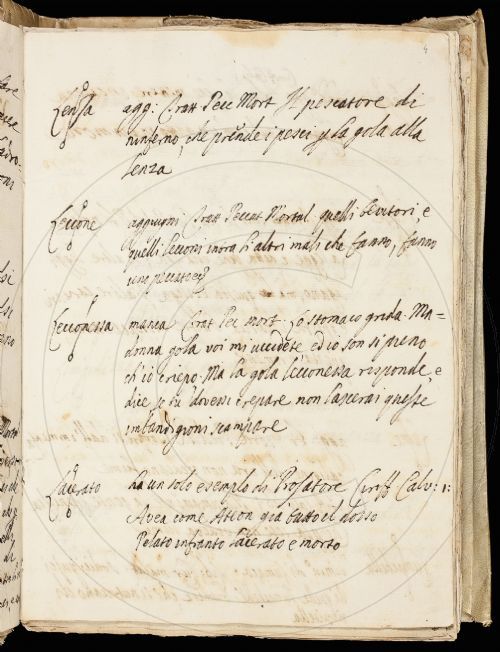 4
Lensa agg: Tratt Pecc Mort Il pescatore di
ninferno, che prende i pesci p la gola alla
lenza
Leccone aggiugni Tratt Peccat Mortal quelli bevitori, e
quelli lecconi infra li altri mali che fanno, fanno
uno peccato
Lecconessa manca Trat Pec Mort. Lo stomaco grida. Ma=
donna gola voi mi uccidete ed io son si pieno
ch' io criepo. Ma la gola lecconessa risponde, e
dice se tu dovessi crepare non lascerai queste
imbandigioni scampare
Lacerato ha un solo esemplo di Prosatore Ciriff Calv: 1:
Avea come Atteon già tutto il dosso
Pelato infranto lacerato e morto